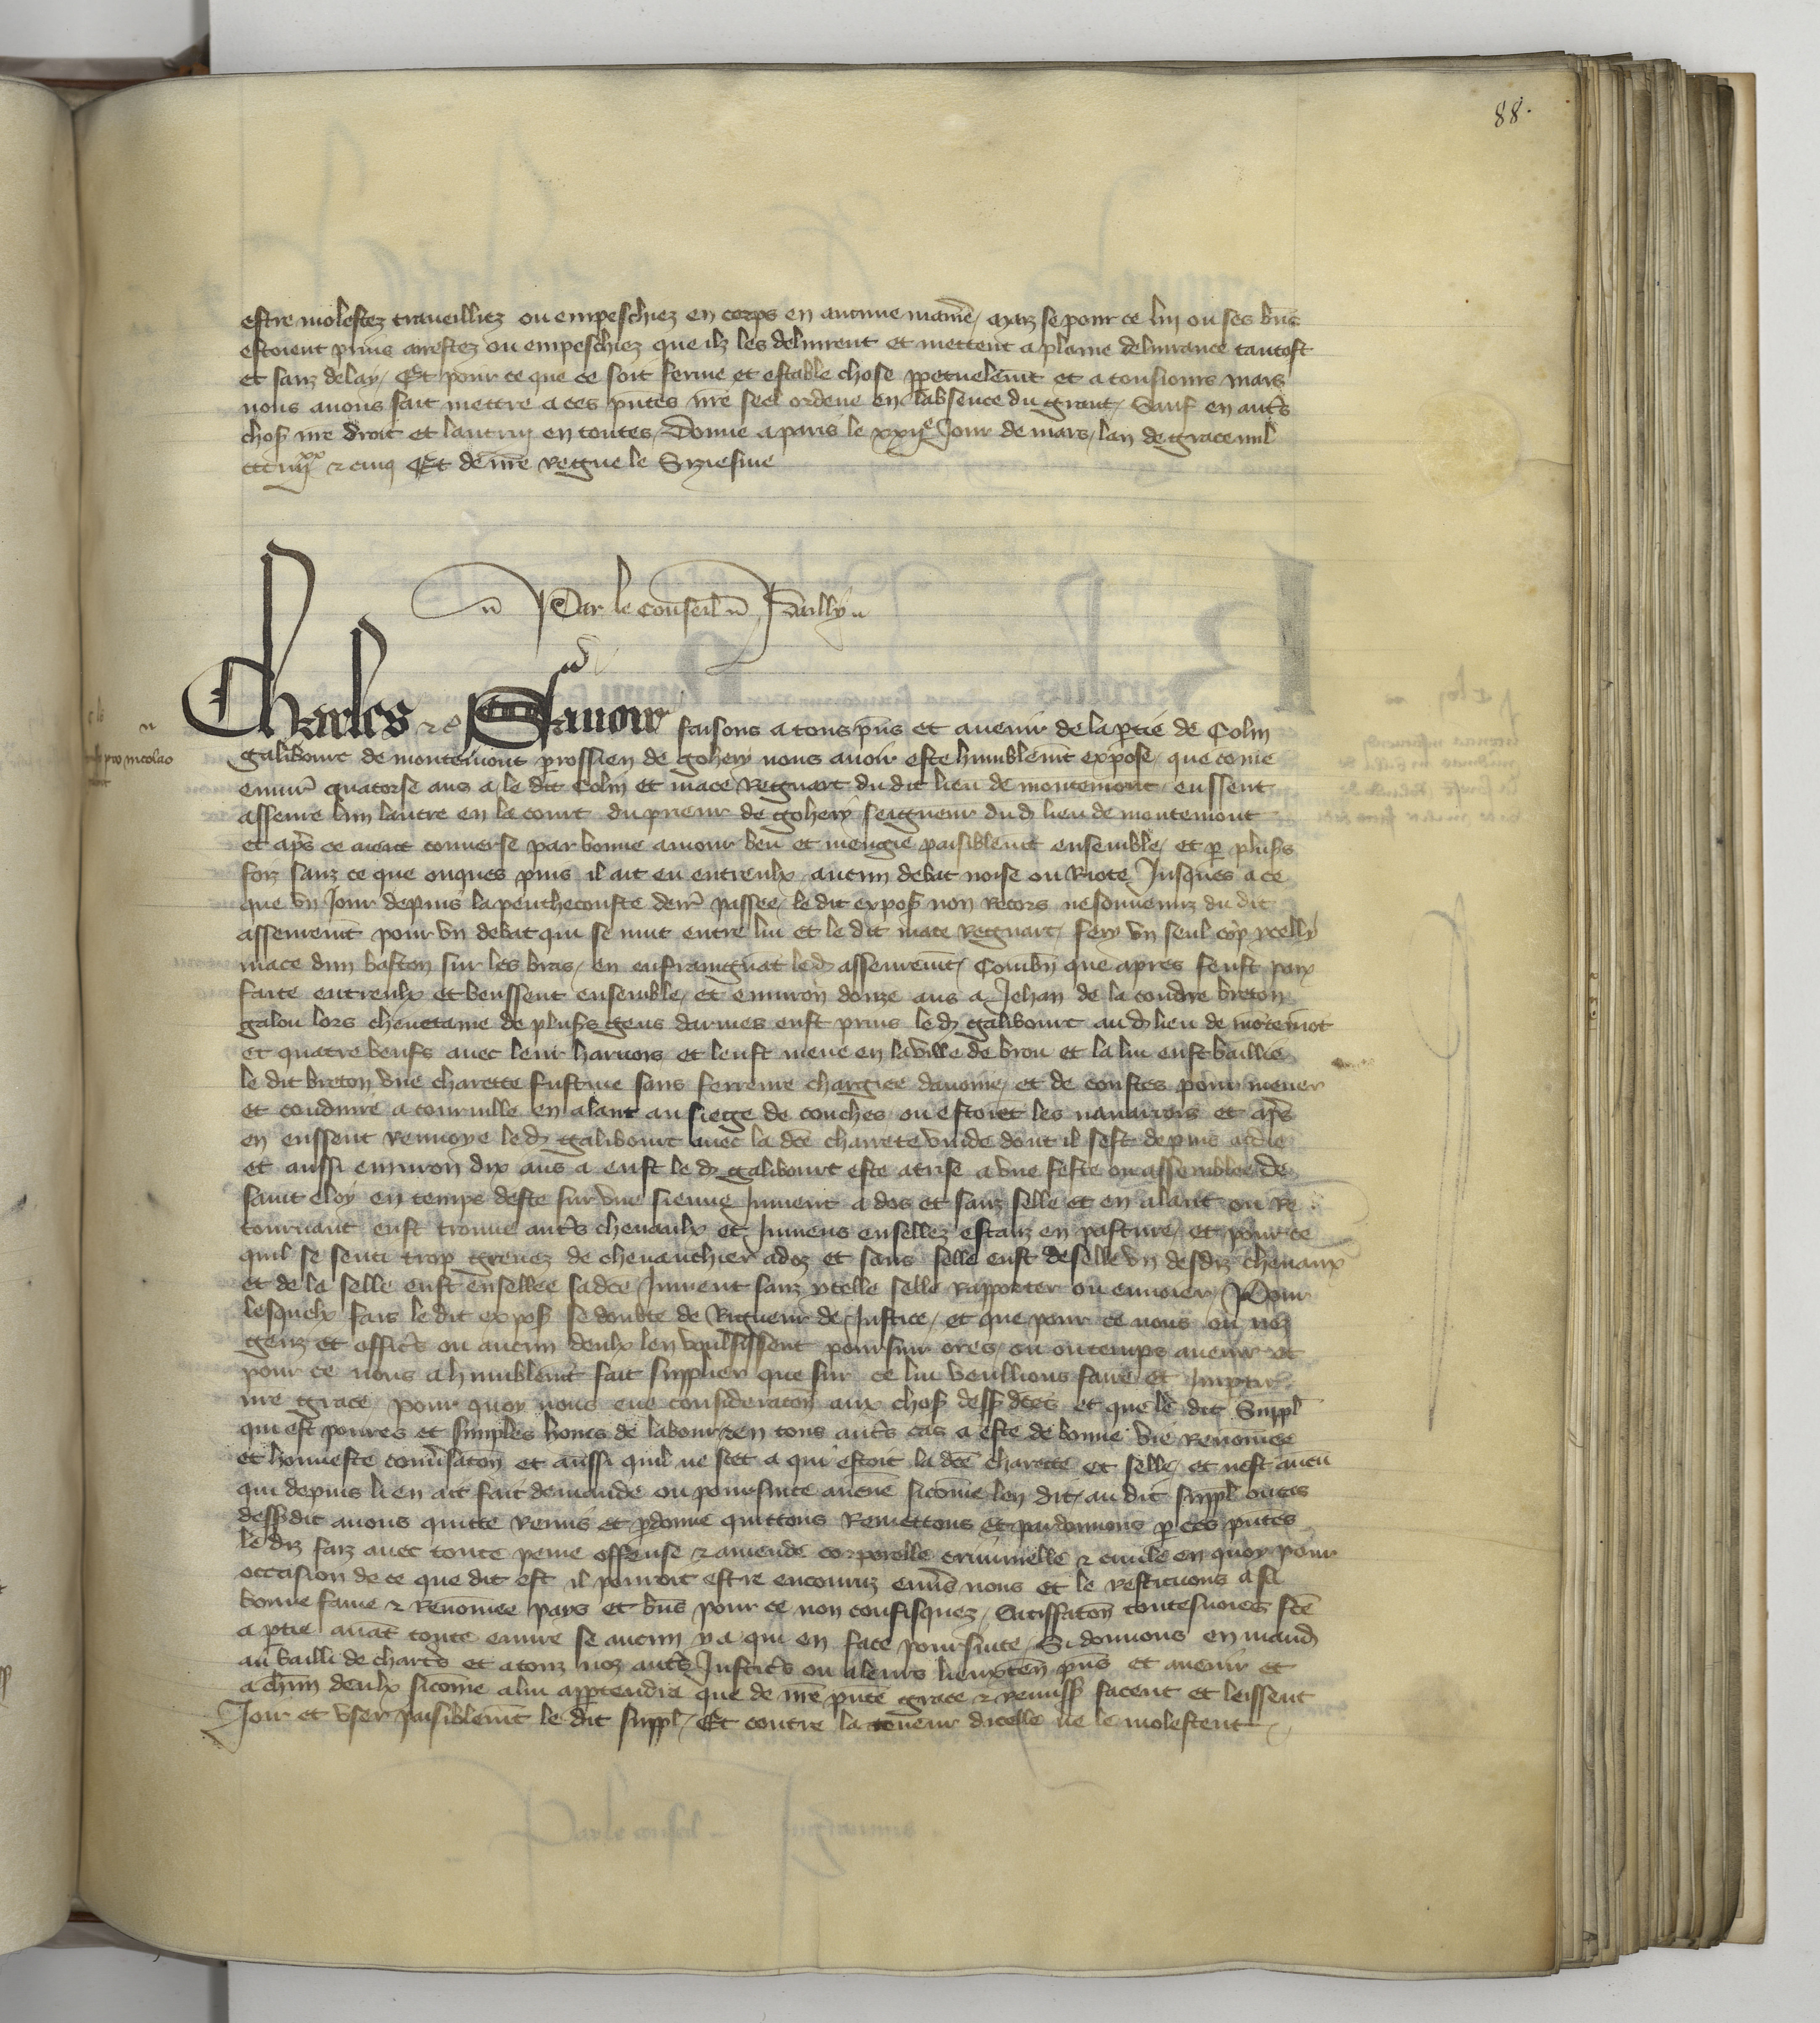 88.
estre molestez traveilliez ou empeschiez en corps en aucune manie, maiz se pour ce lui ou ses bn̄s
estoient prins arrestez ou empeschiez que ilz les delivrent et mettent a plaine delivrance tantost
et sanz delay, Et pour ce que ce soit ferme et estable chose pp̄etuelemt et a tousiours mais
nous avons fait mettre a ces pn̄tes nr̄e seel ordene en labsence du grant, Sauf en autr̄s
chos̄ nr̄e droit et lautruy en toutes, Donne a paris le xxijᵉ Jour de mars, lan de grace mil
ccc iiijˣˣ & cinq Et de nr̄e regne le Siziesme
Par le conseil
Charles &c Savoir faisons a tous pn̄s et avenir de la p̄tie de Colin
galibourt de montemont p̄rossien de gohery nous avoir este humblemt expose, que come
environ quatorse ans a, le dit Colin et mace regnart du dit lieu de montemont, eussent
asseure lun lautre en la court du prieur de gohery seigneur dud lieu de montemont
et apr̄s ce aient converse par bonne amour beu et mengie paisiblemt ensemble, et p̄ plus̄s
foiz sanz ce que onques puis il ait eu entreulx aucun debat noise ou Riote Jusques a ce
que un Jour depuis la penthecouste derr̄ passee, le dit expos̄ non recors ne souvenuz du dit
asseuremt pour un debat qui se mut entre lui et le dit mace regnart, fery un seul cop ycelly
mace dun baston sur les bras, en enfraingnāt led asseuremt, Combn̄ que apres feust paix
faite entreulx et beussent ensemble, et environ douze ans a Jehan de la coudre breton
galou lors chevetaine de plus̄s gens darmes eust prins led galibourt aud lieu de mōtemōt
et quatre beufs avec leur harnois et leust mene en la ville de brou et la lui eust baillie
le dit breton une charette fustine sans ferreure chargiee davoine, et de coustes pour mener
et conduire a courville en alant au siege de conches ou estoiēt les navarrois et apr̄s
en eussent renvoye led galibourt avec la dc̄e charrete vuide dont il sest depuis aidie
et aussi environ dix ans a eust led galibourt este a une feste ou assemblee de
saint eloy en temps deste sur une sienne Jument a dos et sanz selle et en alant ou re
tournant eust trouve autr̄s chevaulx et Jumens ensellez estanz en pasture, et pour ce
quil se senti trop grevez de chevauchier adoz et sans selle eust deselle un desdiz chevaux
et de la selle eust ensellee sadc̄e Jument sanz ycelle selle rapporter ou envoier, Pour
lesquelx fais le dit expos̄ se doubte de Rigueur de Justice, et que pour ce nous ou noz
genz et offic̄s ou aucun deulx len voulsissent poursuir ores, ou ou temps avenir et
pour ce nous a humblemt fait supplier que sur ce lui veullions faire et
nr̄e grace, pour quoy nous eue consideratōn aux chos̄ dess̄ dc̄es et que le dit Suppl̄
qui est povres et simples homs de labour & en tous autr̄s cas a este de bonne vie renomee
et honneste convr̄satōn et aussi quil ne scet a qui estoit la dc̄e charette et selle, et nest aucū
qui depuis lien ait fait demande ou poursuite aucūe sicōme len dit, au dit suppl̄ ou cas
dess̄dit avons quitte remis et p̄donne quittons Remettons et pardonnons p̄ ces pn̄tes
le diz faiz avec toute peine offense & amende corporelle criminelle & civile en quoy pour
occasion de ce que dit est il pourroit estre encouruz envr̄s nous et le restituons a sa
bonne fame & Renomee pays et bn̄s pour ce non confisquez, Satisfatōn toutesvoies fc̄e
a p̄tie avāt toute euvre se aucun y a qui en face poursuite, Si donnons en mand
au bailli de chartr̄s et a touz noz autr̄s Justic̄s ou a leurs lieuxten̄ pn̄s et avenir et
a ch̄un deulx sicōme a lui app̄tendra que de nr̄e pn̄te grace & remiss̄ facent et leissent
Joir et user paisiblemt le dit suppl̄, Et contre la teneur dicelle ne le molestent